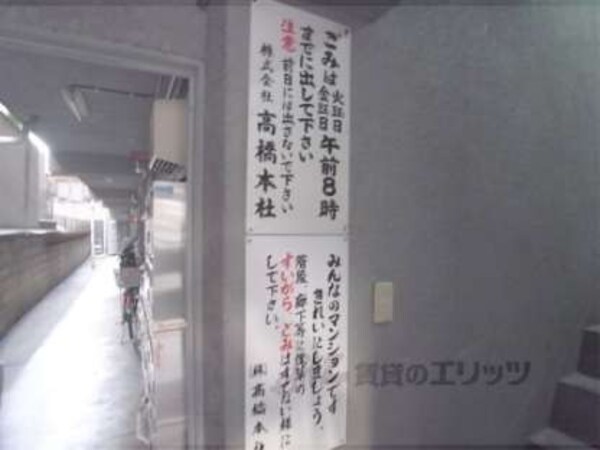 ごみは 火曜日 金曜日 午前8時
までに出して下さい
注意 前日には出さないで下さい
株式会社 高橋本社
みんなのマンションです
きれいにしましょう。
階段、廊下等に煙草の
すいがら、ごみはすてない様に
して下さい。
㈱ 高橋本社
賃貸のエリッツ